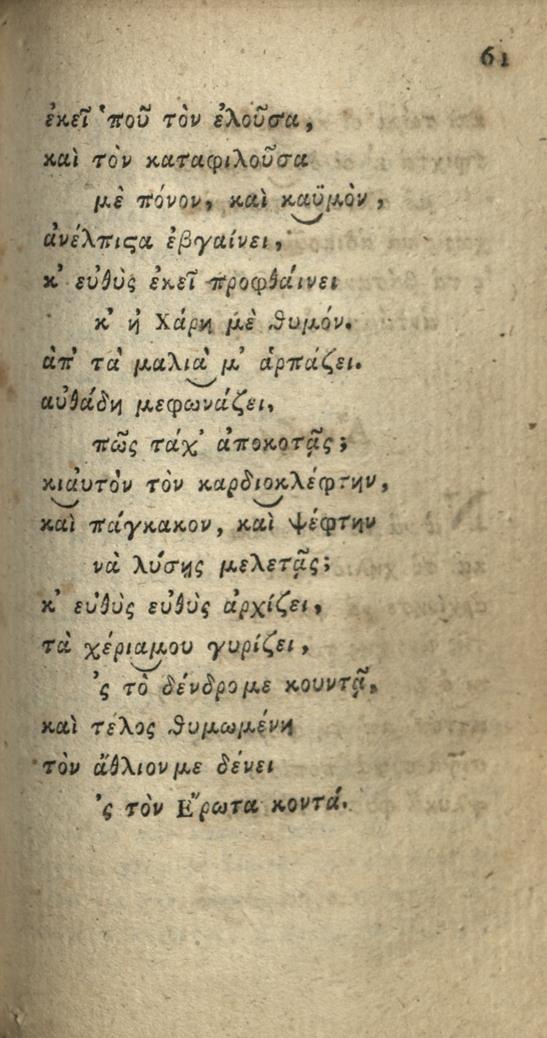 61
ἐκεῖ 'ποῦ τὸν ἐλοῦσα,
καὶ τὸν καταφιλοῦσα
μὲ πόνον, καὶ καϋμὸν,
ἀνέλπιϛα ἐβγαίνει,
κ' εὐθὺς ἐκεῖ προφθάινει
κ' ἡ Χάρη μὲ θυμόν.
ἀπ' τὰ μαλιὰ μ' ἁρπάζει.
αὐθάδη μεφωνάζει,
πῶς τάχ' ἀποκοτᾷς;
κιἀυτὸν τὸν καρδιοκλέφτην,
καὶ πάγκακον, καὶ ψέφτην
νὰ λύσῃς μελετᾷς;
κ' εὐθὺς εὐθὺς ἀρχίζει,
τὰ χέριαμου γυρίζει,
'ϛ τὸ δένδρομε κουντᾷ,
καὶ τέλος θυμωμένη
τὸν ἄθλιονμε δένει
'ϛ τὸν Ἔρωτα κοντά.